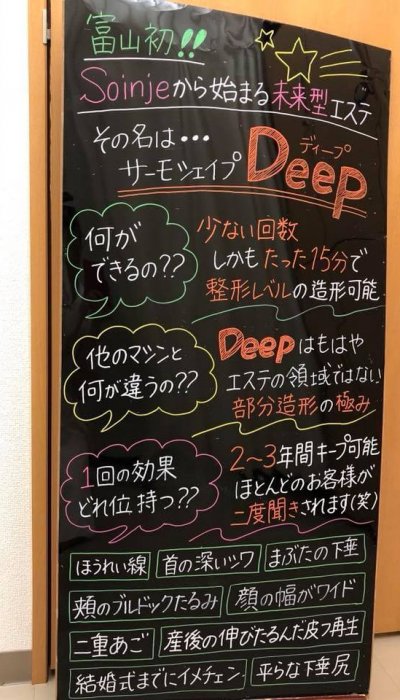 富山初!!
Soinjeから始まる未来型エステ
その名は・・・
サーモシェイプ Deep
ディープ
何が
できるの??
少ない回数
しかもたった15分で
整形レベルの造形可能
他のマシンと
何が違うの??
Deepはもはや
エステの領域ではない
部分造形の極み
1回の効果
どれ位持つ??
2～3年間キープ可能
ほとんどのお客様が
二度聞きされます(笑)
ほうれい線 首の深いシワ まぶたの下垂
頬のブルドックたるみ 顔の幅がワイド
二重あご 産後の伸びたるんだ皮フ再生
結婚式までにイメチェン 平らな下垂尻